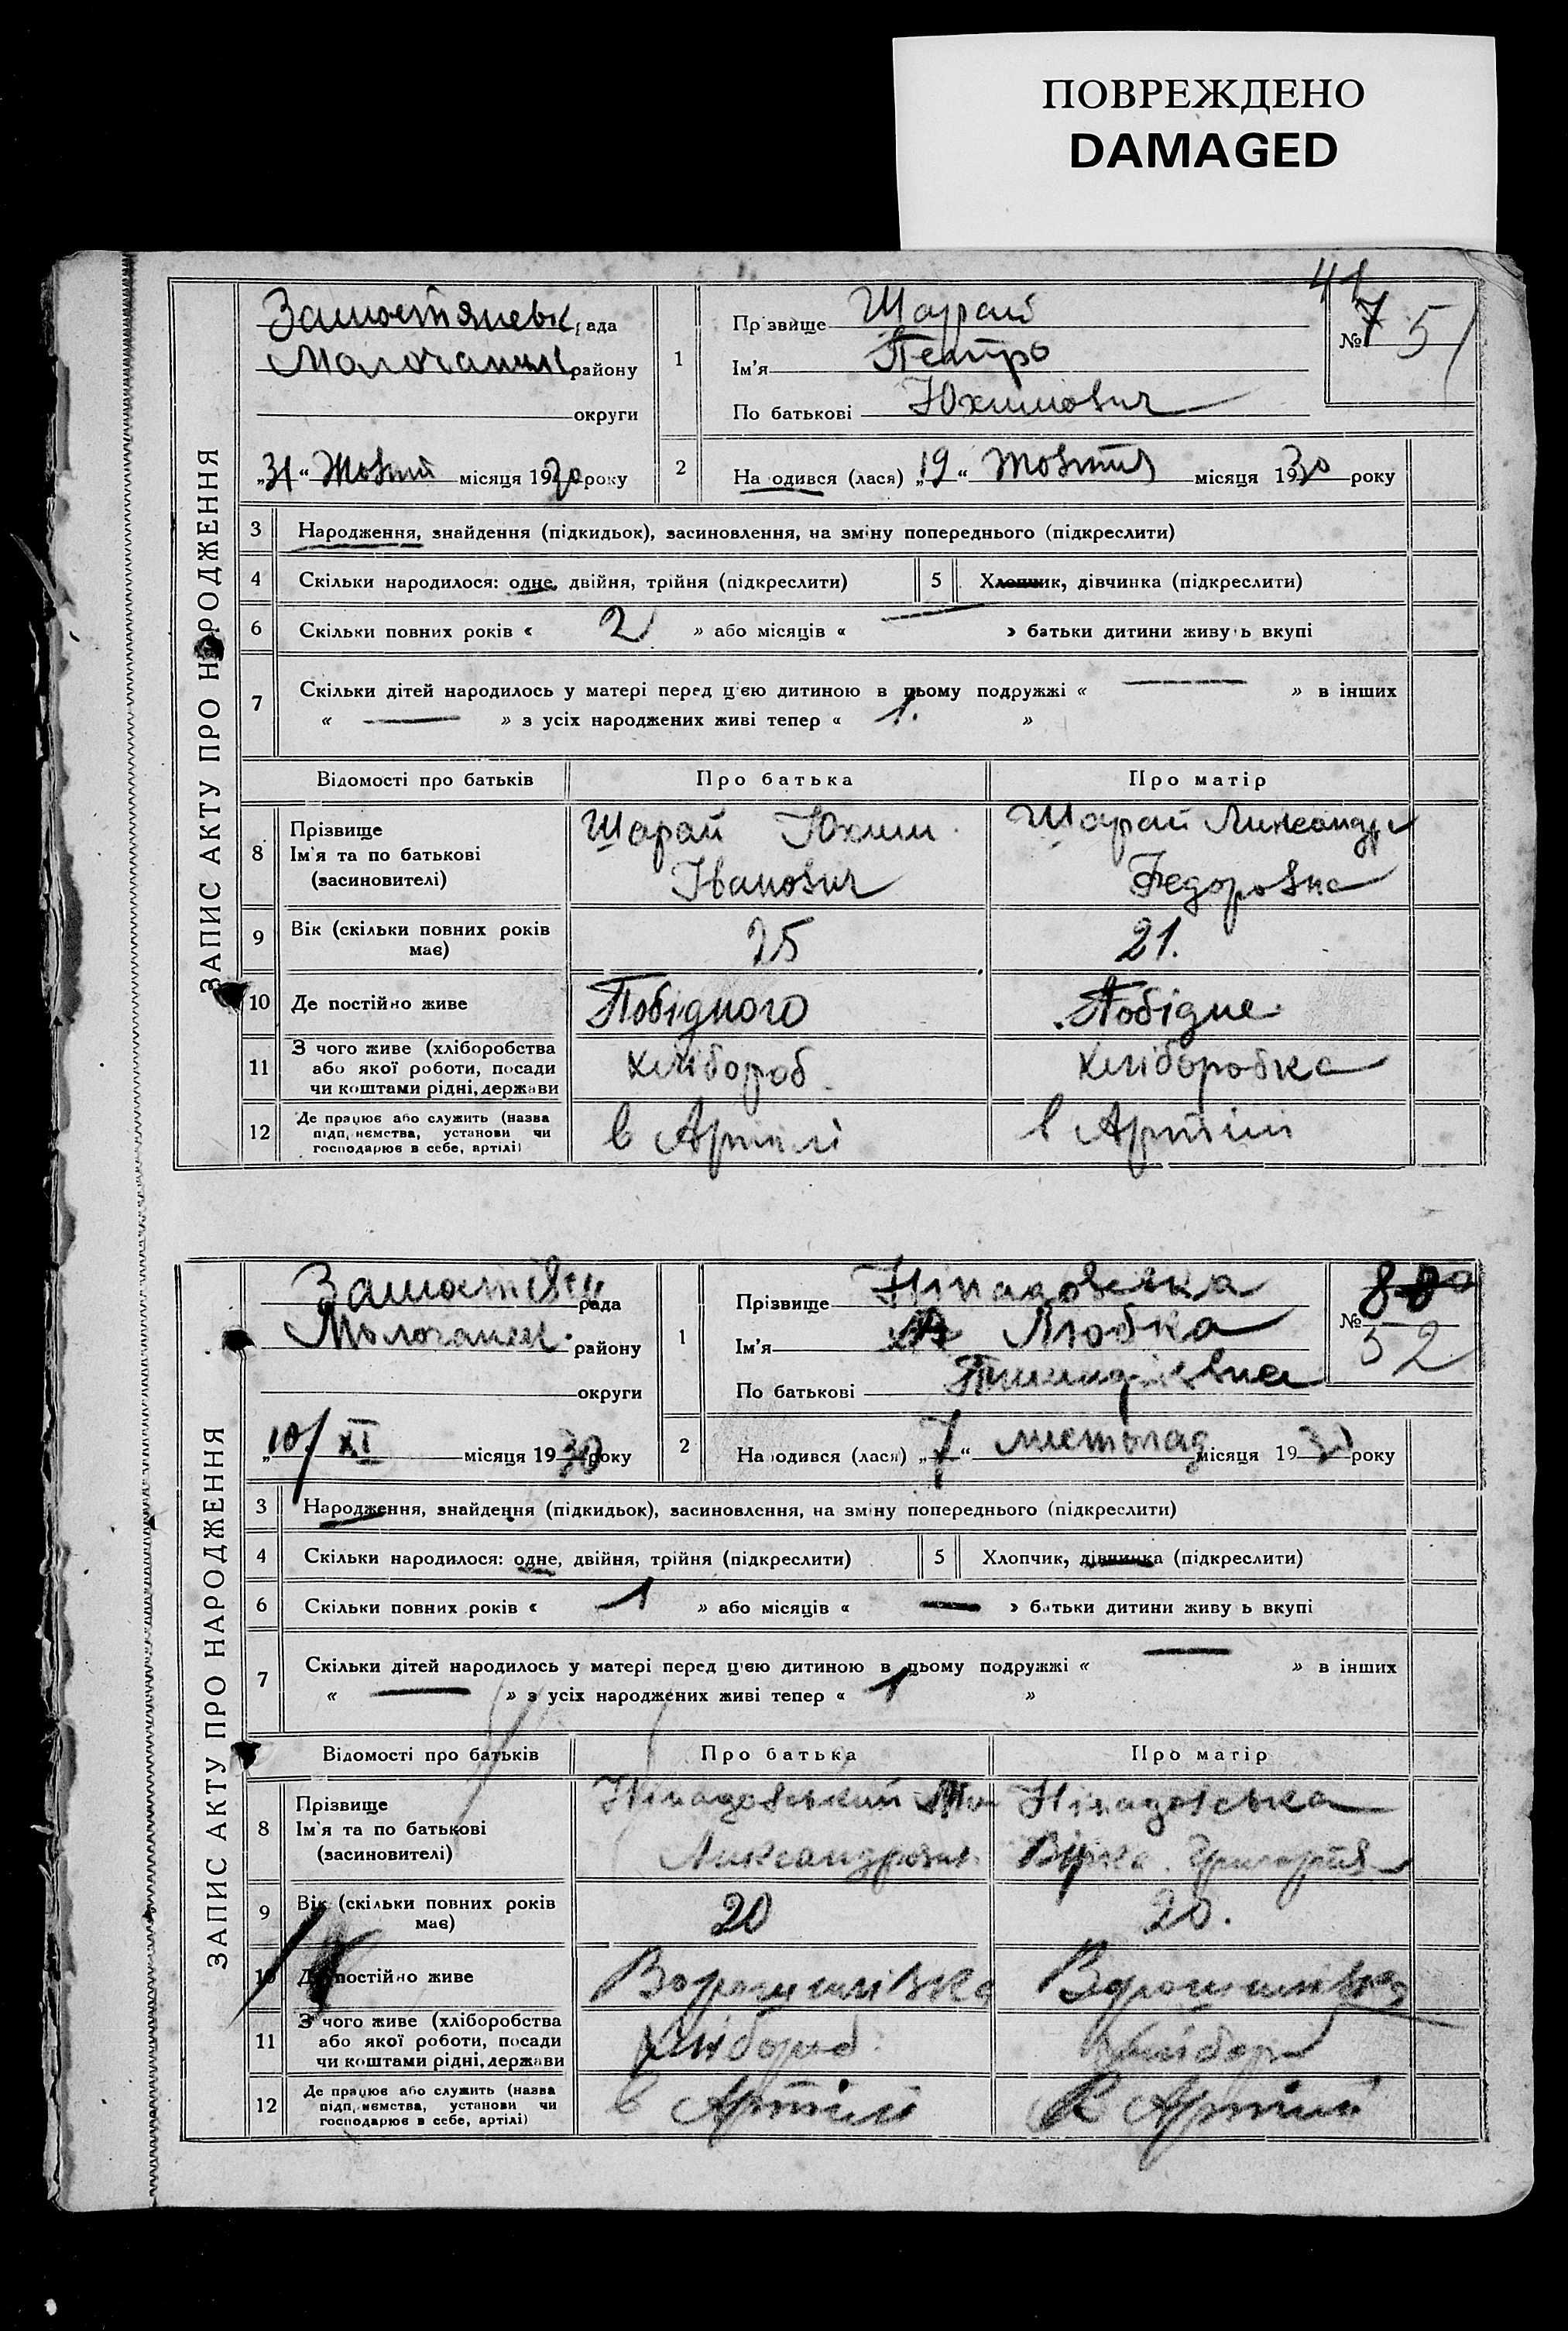 ПОВРЕЖДЕНО
DAMAGED
ЗАПИС АКТУ ПРО НАРОДЖЕННЯ
рада
району
округи
„31“ Жовтн місяця 1930 року
1
Прізвище Шарай
Ім'я Петро
По батькові Юхимович
41
№ 7 51
2
Народився (лася) „19“ Жовтня місяця 1930 року
3 Народження, знайдення (підкидьок), засиновлення, на зміну попереднього (підкреслити)
4 Скільки народилося: одне, двійня, трійня (підкреслити)
5 Хлопчик, дівчинка (підкреслити)
6 Скільки повних років « 2 » або місяців « — » батьки дитини живуть вкупі
7 Скільки дітей народилось у матері перед цією дитиною в цьому подружжі « — » в інших
« — » з усіх народжених живі тепер « 1. »
Відомості про батьків Про батька Про матір
8 Прізвище
Ім'я та по батькові
(засиновителі)
Шарай Юхим
Іванович
Шарай Лиженандр
Федоровна
9 Вік (скільки повних років
має)
25
21.
10 Де постійно живе Побідного Побідне
11 З чого живе (хліборобства
або якої роботи, посади
чи коштами рідні, держави
хлібороб
хліборобка
12 Де працює або служить (назва
підприємства, установи чи
господарює в себе, артілі)
в Артілі
в Артілі
ЗАПИС АКТУ ПРО НАРОДЖЕННЯ
рада
району
округи
„10/XI місяця 1930 року
1
Прізвище
Ім'я Любка
По батькові
№ 8
52
2
Народився (лася) „7“ листопад місяця 1930 року
3 Народження, знайдення (підкидьок), засиновлення, на зміну попереднього (підкреслити)
4 Скільки народилося: одне, двійня, трійня (підкреслити)
5 Хлопчик, дівчинка (підкреслити)
6 Скільки повних років « 1 » або місяців « — » батьки дитини живуть вкупі
7 Скільки дітей народилось у матері перед цією дитиною в цьому подружжі « — » в інших
« — » з усіх народжених живі тепер « 1 »
Відомості про батьків Про батька Про матір
8 Прізвище
Ім'я та по батькові
(засиновителі)
9 Вік (скільки повних років
має)
20
20.
10 Де постійно живе Ворошилівка Ворошилівка
11 З чого живе (хліборобства
або якої роботи, посади
чи коштами рідні, держави
хлібороб
хлібор
12 Де працює або служить (назва
підприємства, установи чи
господарює в себе, артілі)
в Артілі
в Артілі